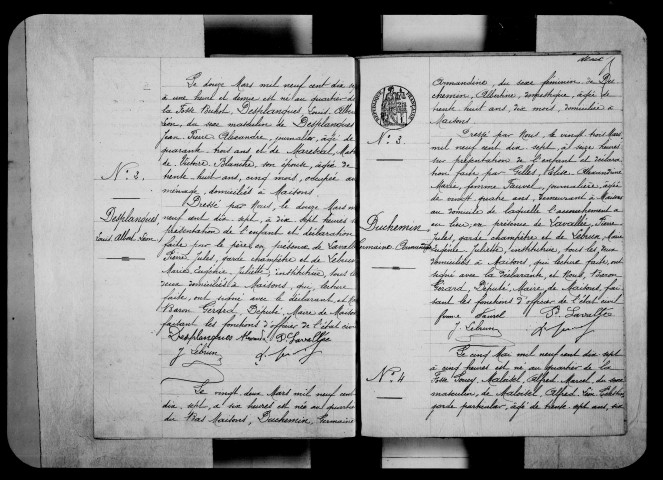 Le douze Mars mil neuf cent dix sept
à une heure et demie est né au quartier de
la Fosse Buhot, Desplanques, Louis Albert
Léon, du sexe masculin de Desplanques
Jean Pierre Alexandre, journalier, âgé de
quarante trois ans et de Marescal,
de Victoire Blanche, son épouse, âgée de
trente huit ans, cinq mois, occupée au
ménage, domiciliés à Maisons
N° 2.
Desplanques
Louis Albert Léon
Dressé par Nous, le douze Mars mil
neuf cent dix sept, à dix sept heures sur
présentation de l'enfant et déclaration
faite par le père, en présence de Lavalley
Pierre Jules, garde champêtre et de Lebrun
Marie Eugénie Juliette, institutrice, tous les
deux domiciliés à Maisons, qui, lecture
faite, ont signé avec le déclarant et Nous
Baron Gérard, Député, Maire de Maisons
faisant les fonctions d'officier de l'état civil
Desplanques P. Lavalley
J. Lebrun
Le vingt deux Mars mil neuf cent
dix sept, à six heures est née au quartier
du Bas Maisons, Duchemin, Germaine
Armandine, du sexe féminin de Du-
chemin, Albertine, domestique, âgée de
trente huit ans, dix mois, domiciliée à
Maisons
N° 3.
Duchemin
Germaine Armandine
Dressé par Nous, le vingt trois Mars
mil neuf cent dix sept, à seize heures
sur présentation de l'enfant et déclara-
tion faite par Gilles, Élise Alexandrine
Marie, femme Fauvel, journalière, âgée
de quatre ans, demeurant à Maisons
au domicile de laquelle l'accouchement a
eu lieu, en présence de Lavalley, Pierre
Jules, garde champêtre et de Lebrun, Marie
Eugénie Juliette, institutrice, tous les deux
domiciliés à Maisons, qui lecture faite, ont
signé avec la déclarante, et Nous, Baron
Gérard, Député, Maire de Maisons, fai-
sant les fonctions d'officier de l'état civil
femme Fauvel P. Lavalley
J. Lebrun
N° 4
Le cinq Mai mil neuf cent dix sept
à cinq heures est né au quartier de la
Fosse Soucy, Maloisel, Alfred Marcel, du sexe
masculin de Maloisel, Alfred
garde particulier, âgé de trente sept ans, six